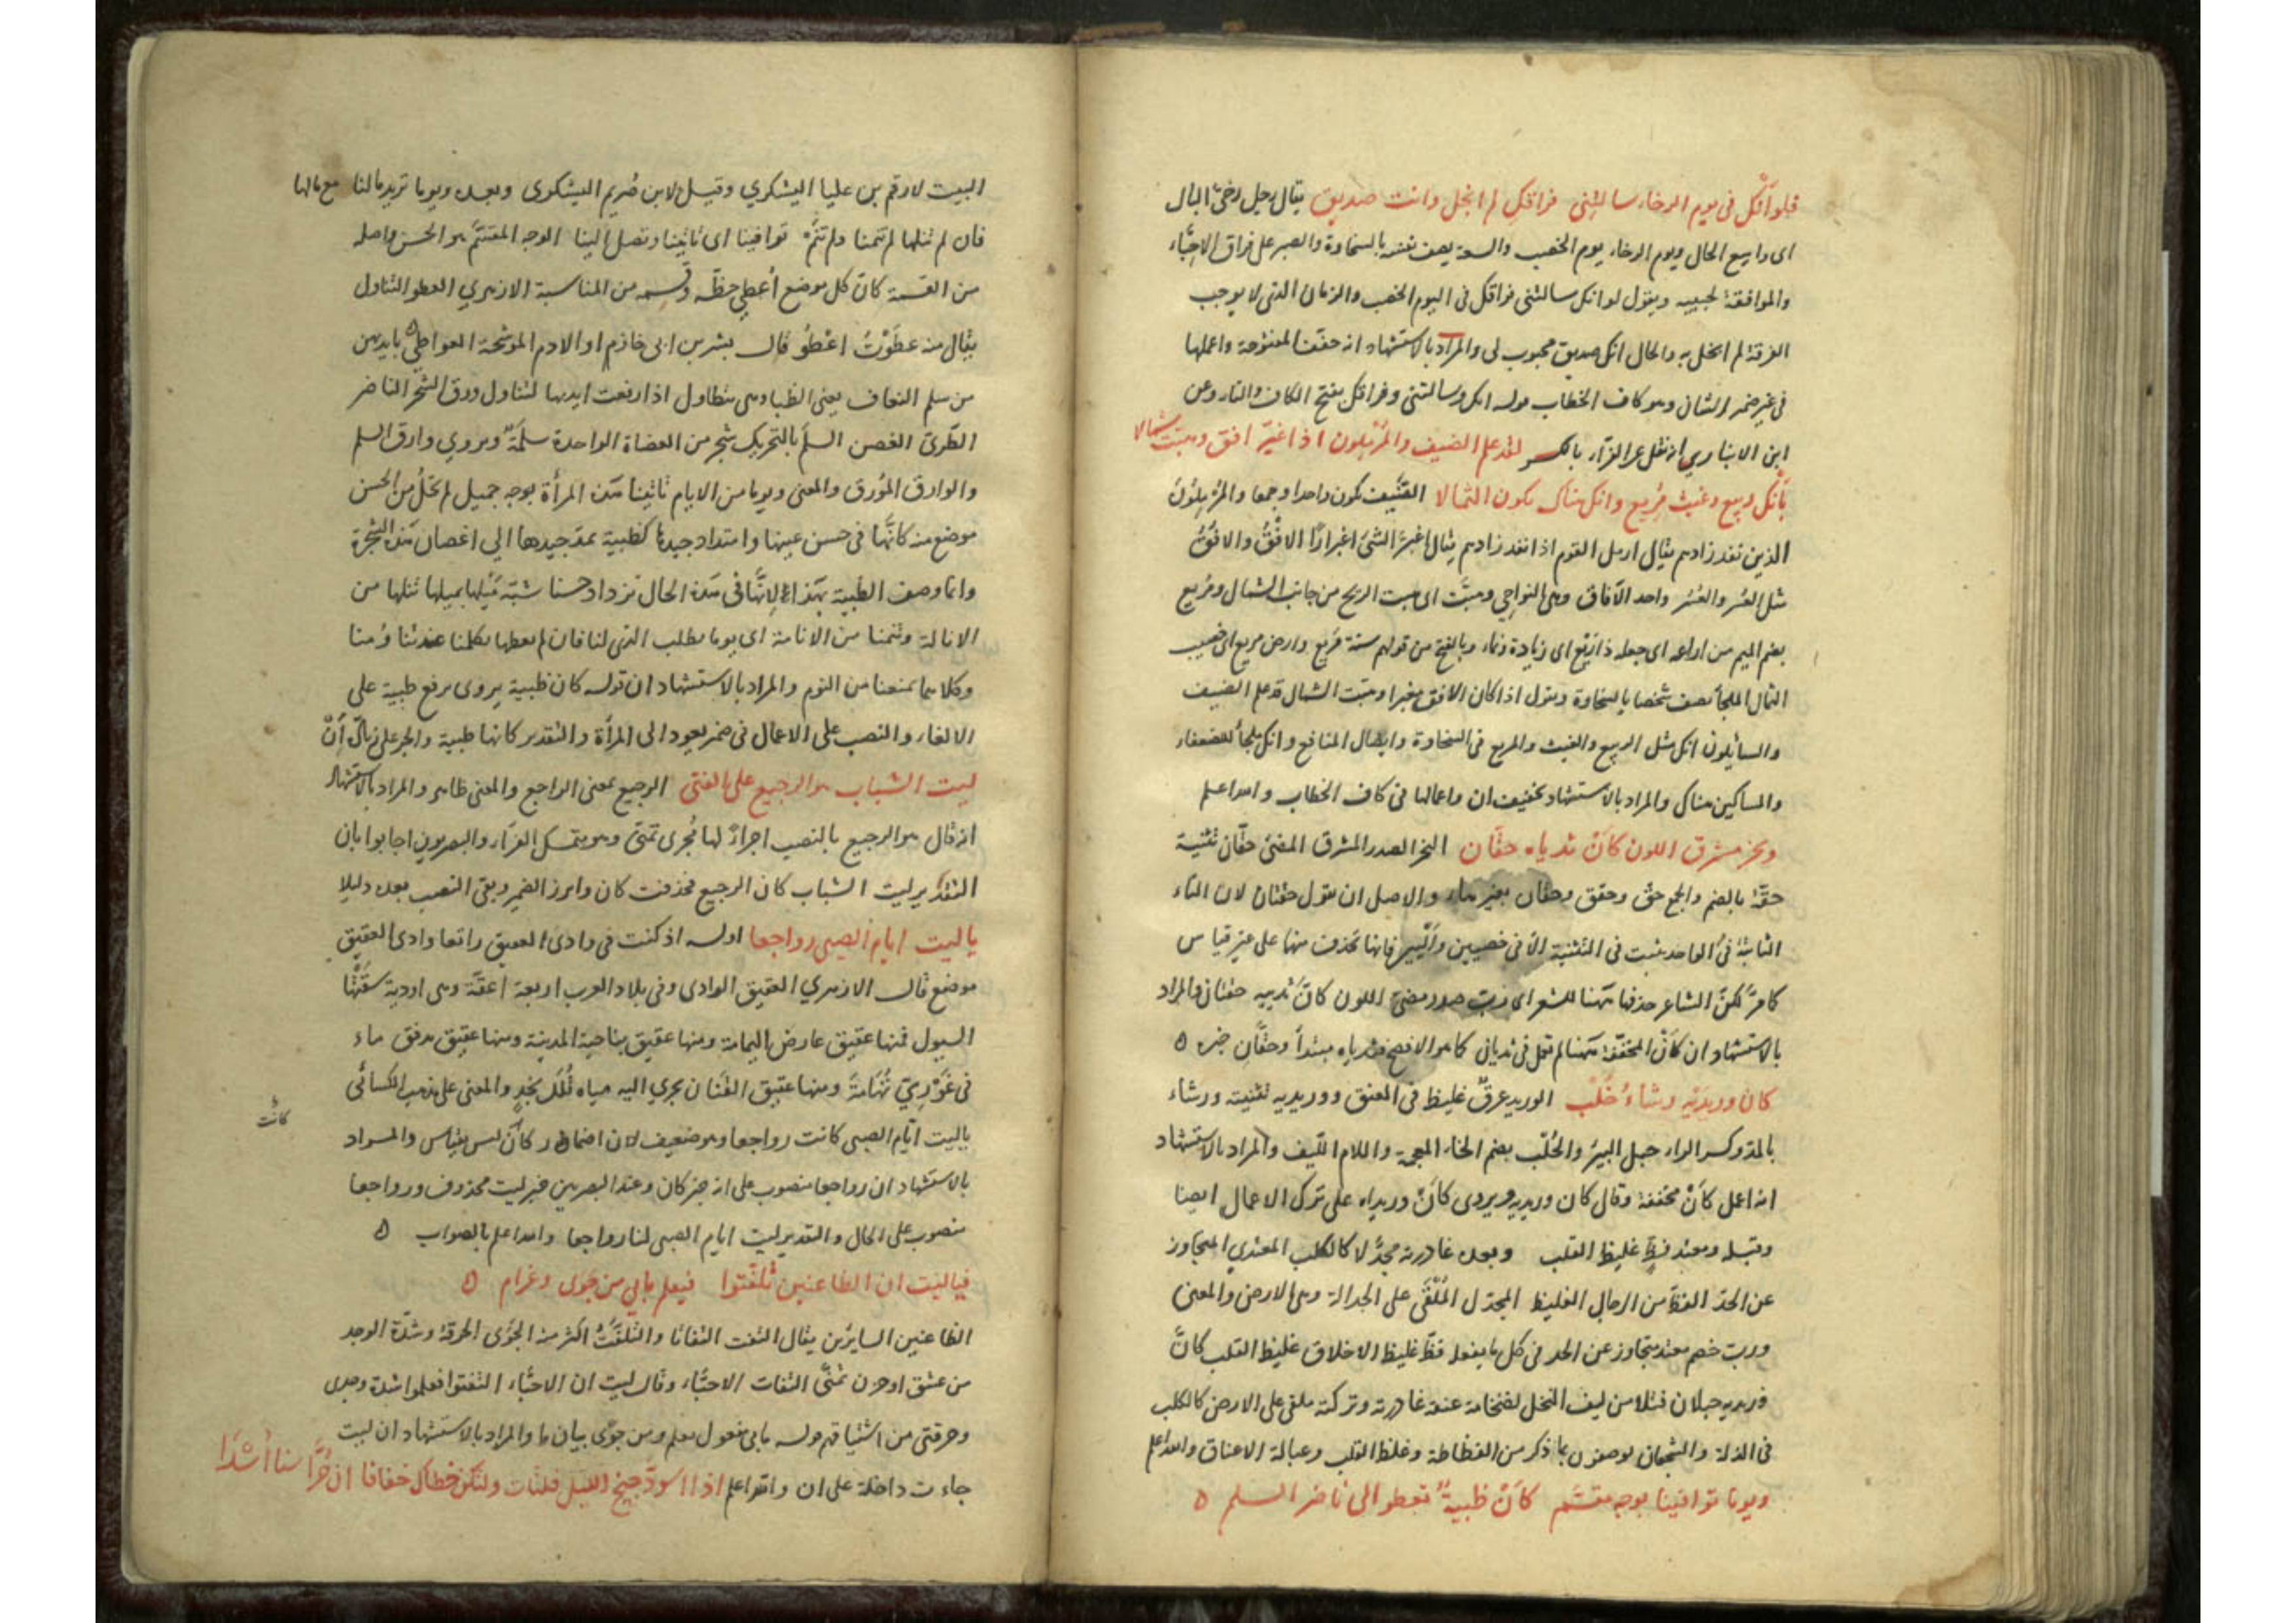 فلو أنك في يوم الرخاء سالتني فراقك لم ابخل وانت صديق يقال رجل رخي البال
اي واسع الحال ويوم الرخاء يوم الخصب والسعة يصف نفسه بالسخاوة والصبر على فراق الاحباء
والموافقة لحبيبه ويقول لو انك سالتني فراقك في اليوم الخصب والزمان الذي لا يوجب
الفرقة لم ابخل به والحال انك صديق محبوب لي والمراد بالاستشهاد انه خفف المفتوحة واعملها
في غير ضمير الشان وهو كاف الخطاب قوله انك وسالتني وفراقك بفتح الكاف والتاء وعن
ابن الانباري انه نقل عن الفراء بالكسر لقد علم الضيف والمرملون اذا اغبر افق وهبت شمالا
بأنك ربيع وغيث مريع وانك هناك تكون الثمالا الضيف يكون واحدا وجمعا والمرملون
الذين نفد زادهم يقال ارمل القوم اذا نفد زادهم يقال اغبر الشئ اغبرارا الافق والافق
مثل العسر والعسر واحد الآفاق وهي النواحي وهبت اي هبت الريح من جانب الشمال ومريع
بضم الميم من اراعه اي جعله ذا ريع اي زيادة ونماء وبالفتح من قولهم سنة مريع وارض مريع اي خصيب
الثمال الملجأ يصف شخصا بالسخاوة ويقول اذا كان الافق مغبرا وهبت الشمال قد علم الضيف
والسايلون انك مثل الربيع والغيث والمريع في السخاوة وايصال المنافع وانك ملجأ للضعفاء
والمساكين هناك والمراد بالاستشهاد تخفيف ان واعمالها في كاف الخطاب والله اعلم
ونحر مشرق اللون كأن ثدياه حقان النحر الصدر المشرق المضئ حقان تثنية
حقة بالضم والجمع حق وحقق وحقاق بغير هاء والاصل ان تقول حقتان لان التاء
الثابتة في الواحد تثبت في التثنية الا في خصيين واليين فانها تحذف منها على غير قياس
كما مر لكن الشاعر حذفها ههنا للشعر اي رب صدر مضئ اللون كان ثدييه حقتان والمراد
بالاستشهاد ان كأن المخففة ههنا لم تعمل في ثديان كما هو الافصح فثدياه مبتدأ وحقان خبره ه
كان وريديه رشاء خلب الوريد عرق غليظ في العنق ووريديه تثنيته ورشاء
بالمد وكسر الراء حبل البير والخلب بضم الخاء المعجمة واللام الليف والمراد بالاستشهاد
انه اعمل كأن مخففة وقال كان وريديه ويروى كأن وريداه على ترك الاعمال ايضا
وقبله ومعتد فظ غليظ القلب وبعده غادرته مجدلا كالكلب المعتدي المتجاوز
عن الحد الفظ من الرجال الغليظ المجدل الملقى على الجدالة وهي الارض والمعنى
ورب خصم معتد متجاوز عن الحد في كل ما يفعله فظ غليظ الاخلاق غليظ القلب كان
وريديه حبلان فتلا من ليف النخل لضخامة عنقه غادرته وتركته ملقى على الارض كالكلب
في الذلة والشجعان يوصفون بما ذكر من الفظاظة وغلظ القلب وعبالة الاعناق والله اعلم
ويوما توافينا بوجه مقسم كأن ظبية تعطو الى ناضر السلم ه
البيت لارقم بن علبا اليشكري وقيل لابن صريم اليشكري وبعده ويوما تريد مالنا مع مالها
فان لم ننلها لم تنمنا ولم تنم توافينا اي تاتينا وتصل الينا الوجه المقسم هو الحسن واصله
من القسمة كان كل موضع أعطي حظه وقسمه من المناسبة الازهري العطو التناول
يقال منه عطوت اعطو قال بشر بن ابي خازم او الادم الموشحة العواطي بايديهن
من سلم النعاف يعني الظباء وهي تتطاول اذا رفعت ايديها لتتناول ورق الشجر الناضر
الطري الغصن السلم بالتحريك شجر من العضاة الواحدة سلمة ويروي وارق السلم
والوارق المورق والمعنى ويوما من الايام تاتينا هذه المرأة بوجه جميل لم تخل من الحسن
موضع منه كانها في حسن عينها وامتداد جيدها كظبية تمد جيدها الي اغصان هذه الشجرة
وانما وصف الظبية بهذا لانها في هذه الحال تزداد حسنا شبه ميلها بميلها ننلها من
الانالة وتنمنا من الانامة اي يوما تطلب الذي لنا فان لم نعطها تكلمنا
وكلاهما تمنعنا من النوم والمراد بالاستشهاد ان قوله كان ظبية يروى برفع ظبية على
الالغاء والنصب على الاعمال في ضمير يعود الى المرأة والتقدير كانها ظبية والجر على زيادة أن
ليت الشباب هو الرجيع على الفتى الرجيع بمعنى الراجع والمعنى ظاهر والمراد بالاستشهاد
انه قال هو الرجيع بالنصب اجراء لها مجرى تمنى وهو متمسك الفراء والبصريون اجابوا بان
التقدير ليت الشباب كان الرجيع فحذفت كان وابرز الضمير وبقي النصب بعده دليلا
يا ليت ايام الصبى رواجعا اوله اذ كنت في وادي العقيق راتعا وادي العقيق
موضع قال الازهري العقيق الوادي وفي بلاد العرب اربعة اعقة وهي اودية شقتها
السيول فمنها عقيق عارض اليمامة ومنها عقيق بناحية المدينة ومنها عقيق تدفق ماء
في غوري تهامة ومنها عقيق القنان يجري اليه مياه قلل نجد والمعنى على مذهب الكسائي
ياليت ايام الصبى كانت رواجعا وهو ضعيف لان اضمار كان ليس بقياس والمراد
كانت
بالاستشهاد ان رواجعا منصوب على انه خبر كان وعند البصريين خبر ليت محذوف ورواجعا
منصوب على الحال والتقدير ليت ايام الصبى لنا رواجعا والله اعلم بالصواب ه
فياليت ان الظاعنين تلفتوا فيعلم ما بي من جوى وغرام ه
الظاعنين السايرين يقال التفت التفاتا والتلفت اكثر منه الجوى الحرقة وشدة الوجد
من عشق او حزن تمنى التفات الاحباء وقال ليت ان الاحباء التفتوا فعلموا شدة وجدي
وحرقتي من اشتياقهم قوله ما بي مفعول يعلم ومن جوى بيان ما والمراد بالاستشهاد ان ليت
جاءت داخلة على ان والله اعلم اذا اسود جنح الليل فلتأت ولتكن خطاك خفافا ان حراسنا أسدا